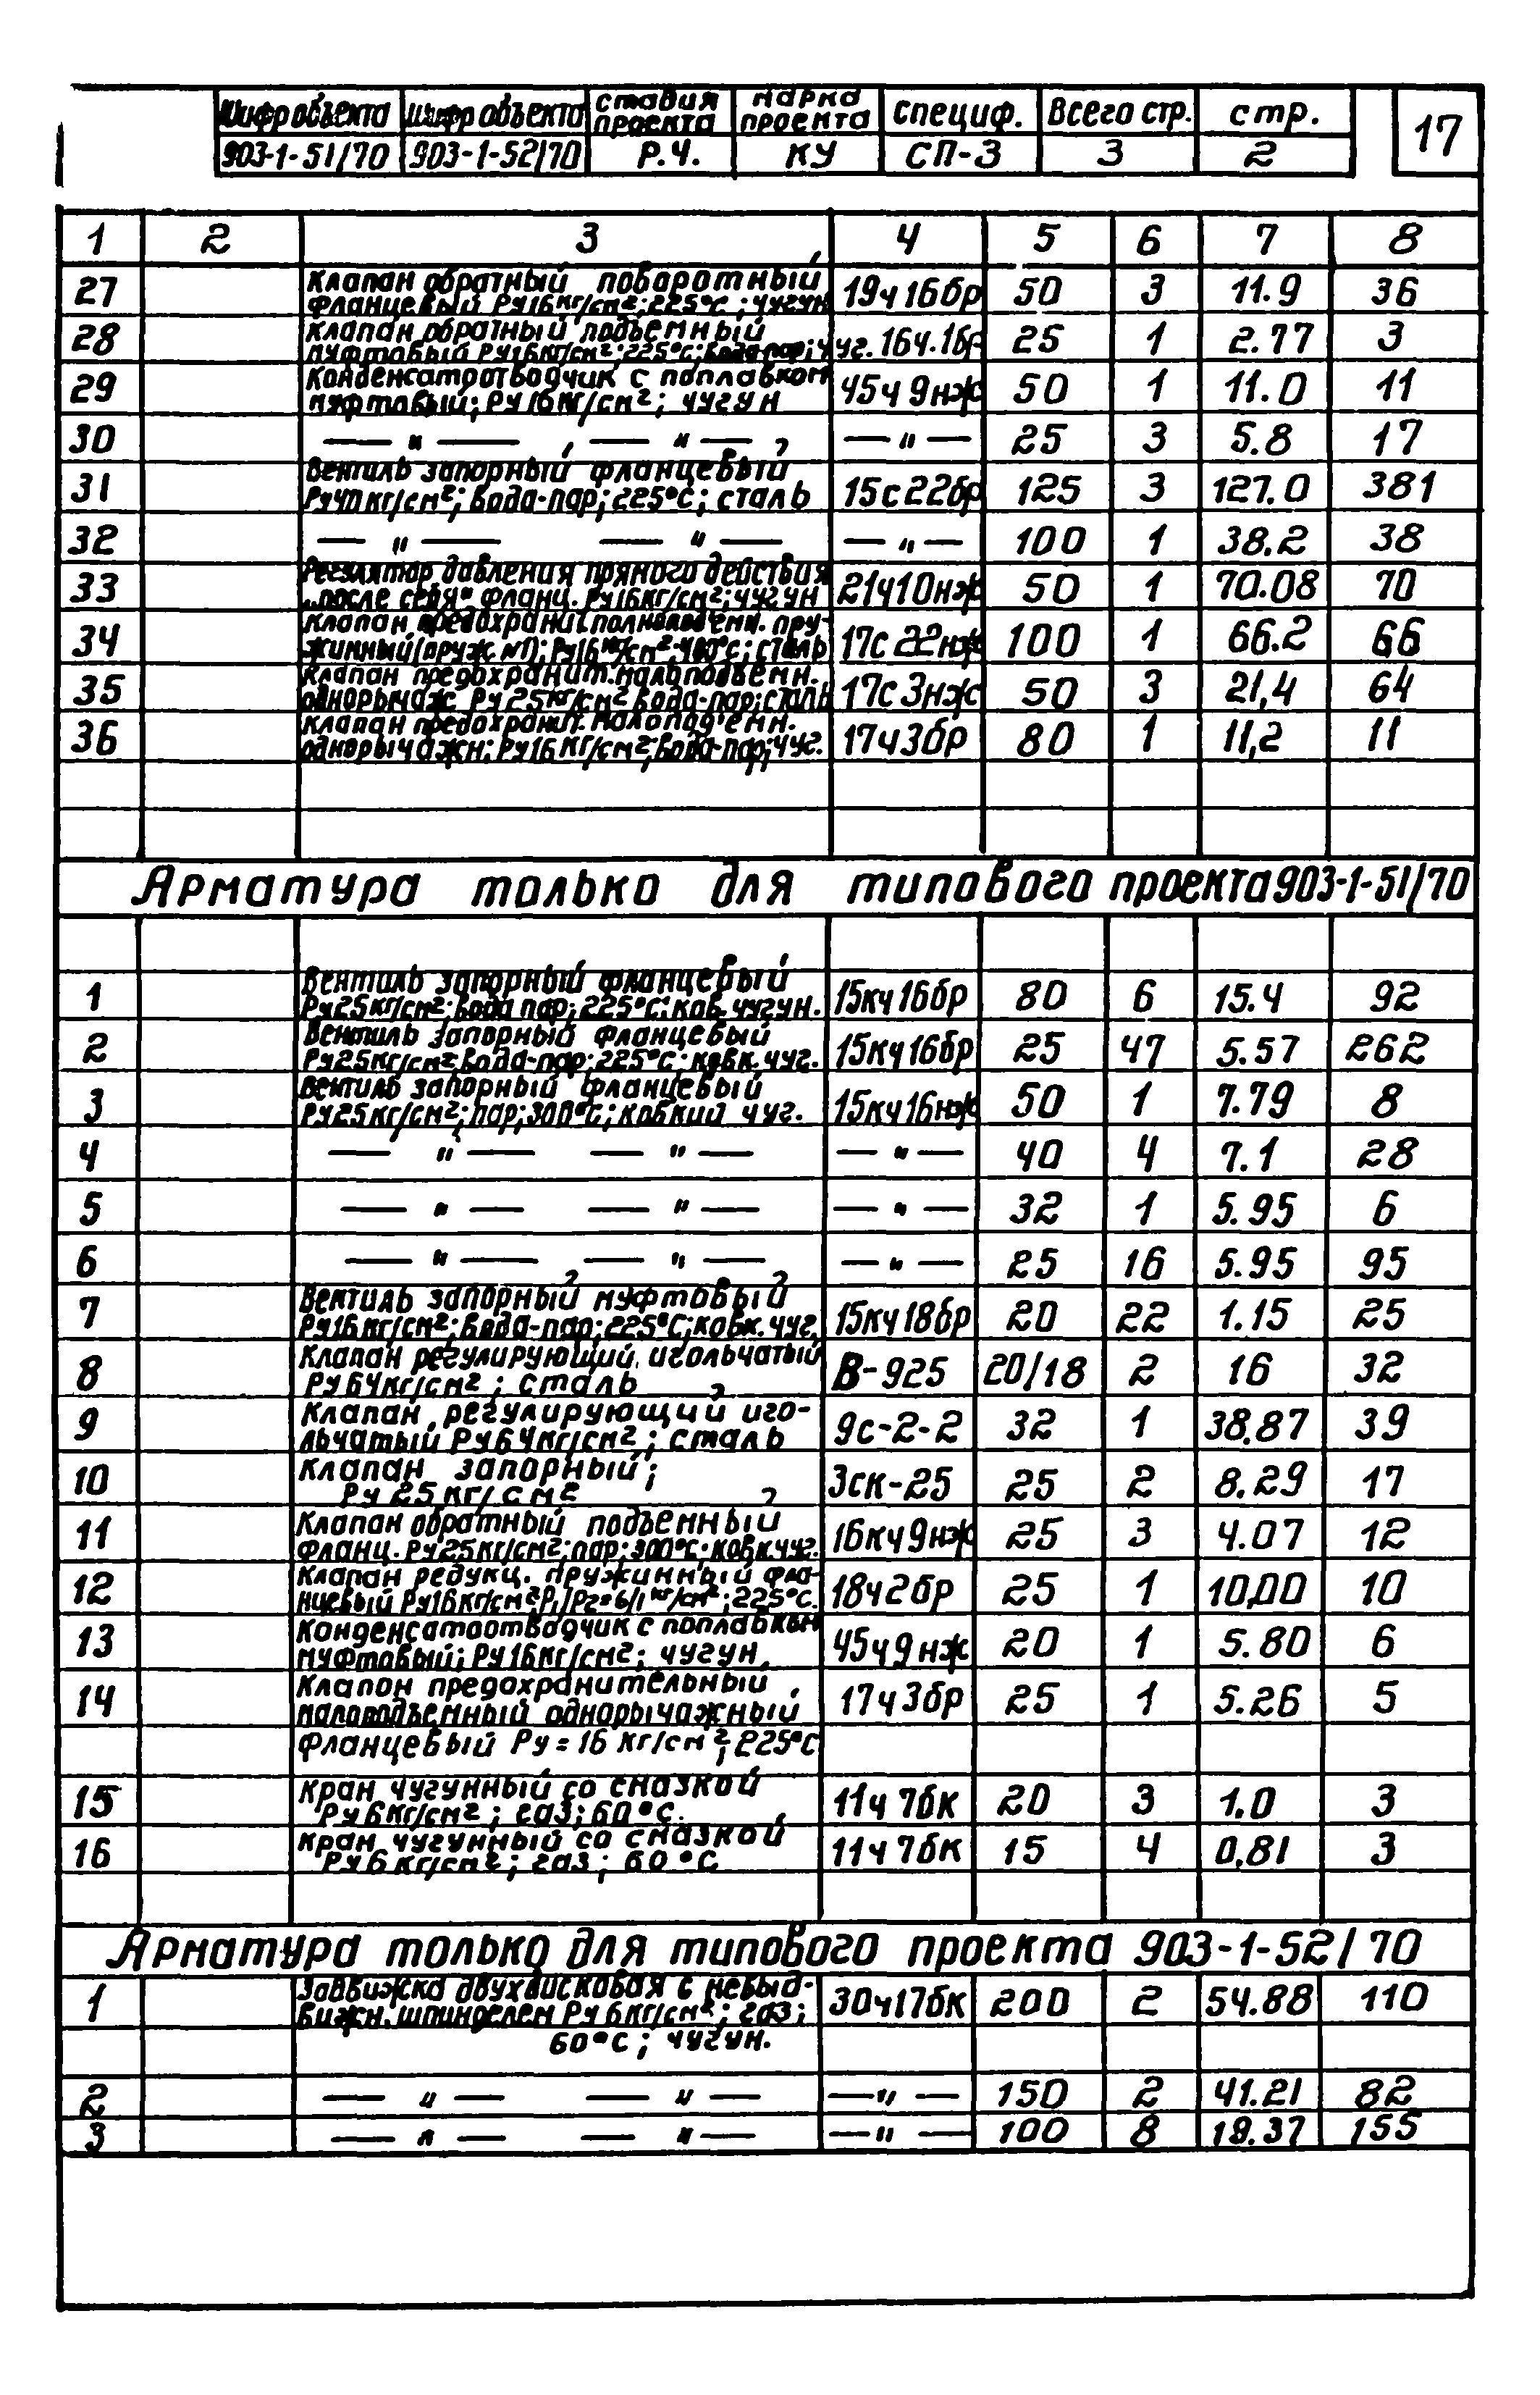 Шифр объекта Шифр объекта стадия проекта марка проекта специф. Всего стр. стр. 17
903-1-51/70 903-1-52/70 Р.Ч. КУ СП-3 3 2
1 2 3 4 5 6 7 8
27 Клапан обратный поворотный
фланцевый Ру16кг/см²; 225°С; чугун 19ч16бр 50 3 11.9 36
28 Клапан обратный подъемный
муфтовый Ру16кг/см²; 225°С; вода-пар; чуг. 16ч.1бр 25 1 2.77 3
29 Конденсатоотводчик с поплавком
муфтовый; Ру16кг/см²; чугун 45ч9нж 50 1 11.0 11
30 — " — , — " — , — " — 25 3 5.8 17
31 Вентиль запорный фланцевый
Ру40кг/см²; вода-пар; 225°С; сталь 15с22бр 125 3 127.0 381
32 — " — — " — — " — 100 1 38.2 38
33 Регулятор давления прямого действия
„после себя" фланц. Ру16кг/см²; чугун 21ч10нж 50 1 70.08 70
34 Клапан предохранит. полноподъемн. пру-
жинный (пруж. №1); Ру16кг/см² 400°С; сталь 17с22нж 100 1 66.2 66
35 Клапан предохранит. малоподъемн.
однорычаж Ру25кг/см² вода-пар; сталь 17с3нж 50 3 21,4 64
36 Клапан предохранит. малопод'емн.
однорычажн; Ру16кг/см²; вода-пар; чуг. 17ч3бр 80 1 11,2 11
Арматура только для типового проекта 903-1-51/70
1 Вентиль запорный фланцевый
Ру25кг/см²; вода пар; 225°С; ков. чугун. 15кч16бр 80 6 15.4 92
2 Вентиль запорный фланцевый
Ру25кг/см² вода-пар; 225°С; ковк. чуг. 15кч16бр 25 47 5.57 262
3 Вентиль запорный фланцевый
Ру25кг/см²; пар; 300°С; ковкий чуг. 15кч16нж 50 1 7.79 8
4 — " — — " — — " — 40 4 7.1 28
5 — " — — " — — " — 32 1 5.95 6
6 — " — — " — — " — 25 16 5.95 95
7 Вентиль запорный муфтовый
Ру16кг/см²; вода-пар; 225°С; ковк. чуг. 15кч18бр 20 22 1.15 25
8 Клапан регулирующий игольчатый
Ру64кг/см²; сталь В-925 20/18 2 16 32
9 Клапан регулирующий иго-
льчатый Ру64кг/см²; сталь 9с-2-2 32 1 38.87 39
10 Клапан запорный;
Ру25кг/см² 3ск-25 25 2 8.29 17
11 Клапан обратный подъемный
фланц. Ру25кг/см²; пар; 300°С; ковк.чуг. 16кч9нж 25 3 4.07 12
12 Клапан редукц. пружинный фла-
нцевый Ру16кг/см² Р1/Р2=6/1 кг/см²; 225°С. 18ч2бр 25 1 10,00 10
13 Конденсатоотводчик с поплавком
муфтовый; Ру16кг/см²; чугун. 45ч9нж 20 1 5.80 6
14 Клапон предохранительный
малоподъемный однорычажный 17ч3бр 25 1 5.26 5
фланцевый Ру=16 кг/см²; 225°С
15 Кран чугунный со смазкой
Ру6кг/см²; газ; 60°С. 11ч7бк 20 3 1.0 3
16 Кран чугунный со смазкой
Ру6кг/см²; газ; 60°С 11ч7бк 15 4 0.81 3
Арматура только для типового проекта 903-1-52/70
1 Задвижка двухдисковая с невыд-
вижн. шпинделем Ру6кг/см²; газ; 30ч17бк 200 2 54.88 110
60°С; чугун.
2 — " — — " — — " — 150 2 41.21 82
3 — " — — " — — " — 100 8 19.37 155